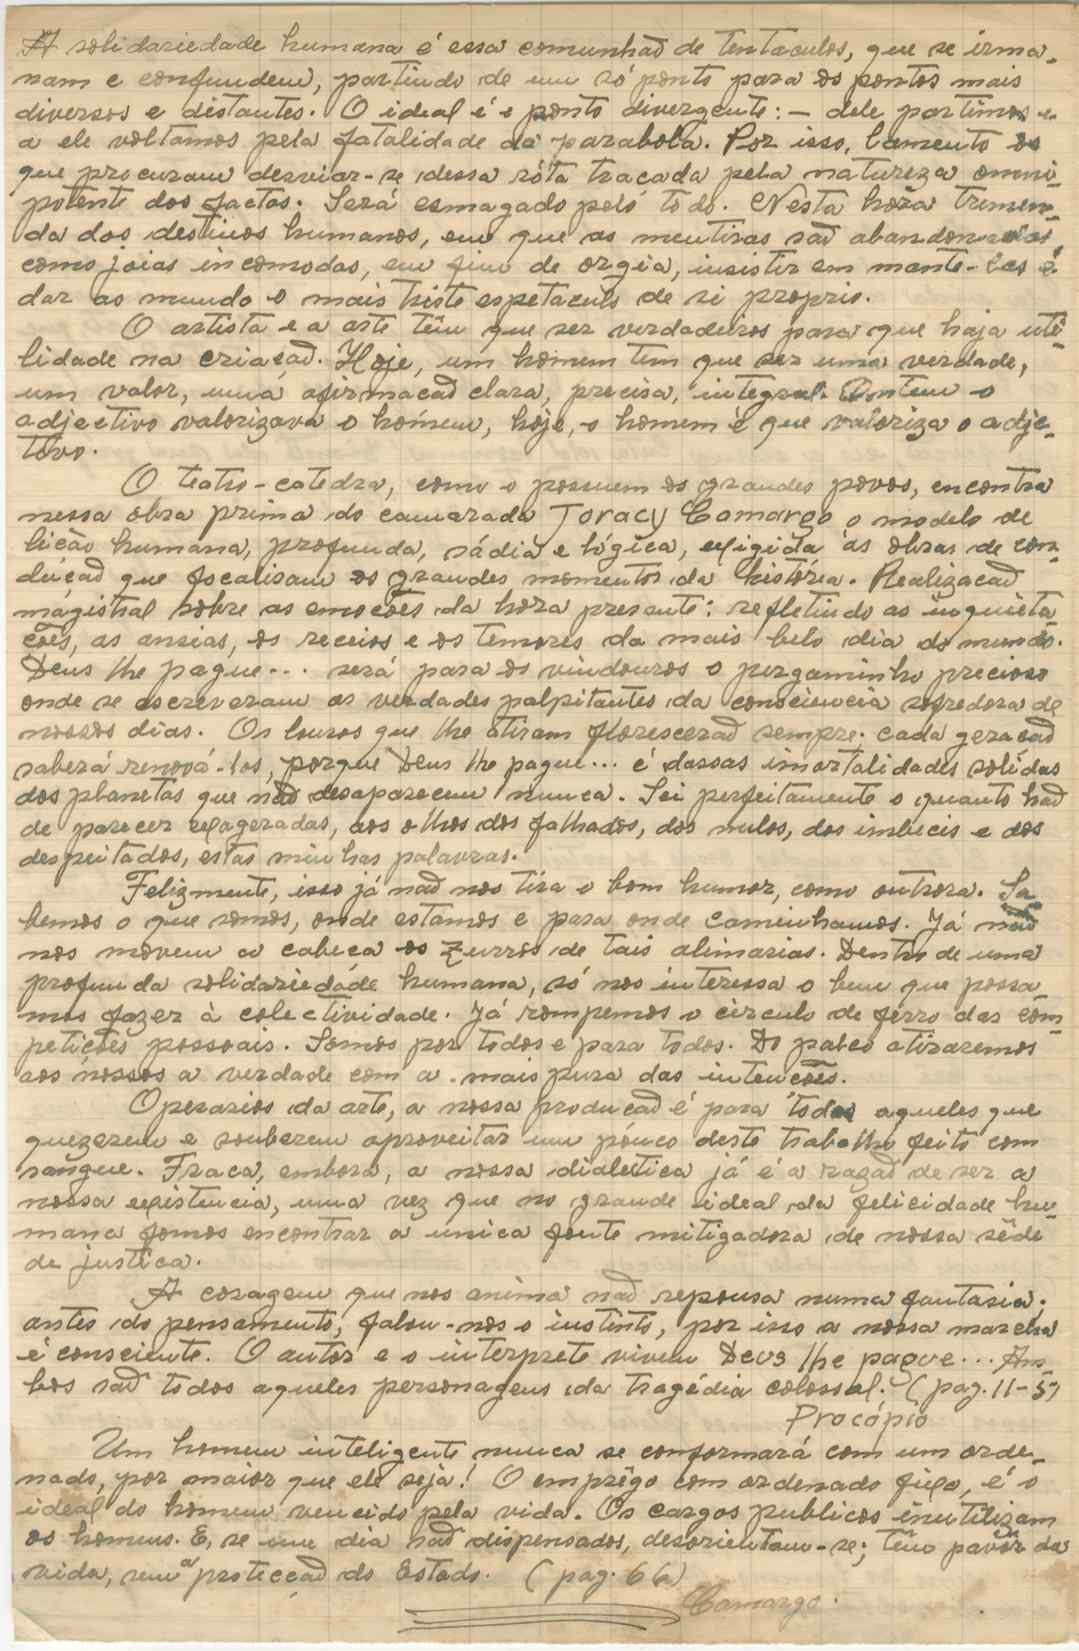 A solidariedade humana é essa comunhaõ de tentaculos, que se irma-
nam e confundem, partindo de um só ponto para os pontos mais
diversos e distantes. O ideal é o ponto divergente: — dele partimos e
a ele voltamos pela fatalidade da parabola. Por isso, lamento os
que procuram desviar-se dessa róta tracada pela natureza omni-
potente dos factos. Será esmagado pelo todo. Nesta hora tremen-
da dos destinos humanos, em que as mentiras saõ abandonadas,
como joias incomodas, em fim de orgia, insistir em mante-las é
dar ao mundo o mais triste espetaculo de si proprio.
O artista e a arte têm que ser verdadeiros para que haja uti-
lidade na criacaõ. Hoje, um homem tem que ser uma verdade,
um valor, uma afirmacaõ clara, precisa, integral. Ontem o
adjectivo valorizava o homem, hoje, o homem é que valoriza o adje-
tivo.
O teatro-catedra, como o possuem os grandes povos, encontra
nessa obra prima do camarada Joracy Camargo o modelo de
licão humana, profunda, sádia e lógica, exigida ás obras de con-
ducaõ que focalisam os grandes momentos da história. Realizacaõ
magistral sobre as emocões da hora presente: refletindo as inquieta
cões, as ansias, os receios e os temores da mais belo dia do mundo.
Deus lhe pague... será para os vindouros o pergaminho precioso
onde se escreveram as verdades palpitantes da consciencia sofredora de
nossos dias. Os louros que lhe atiram floresceraõ sempre. cada geracaõ
saberá renová-los, porque Deus lhe pague... é dessas imortalidades solidas
dos planetas que naõ desaparecem nunca. Sei perfeitamente o quanto haõ
de parecer exageradas, aos olhos dos falhados, dos nulos, dos imbecis e dos
despeitados, estas minhas palavras.
Felizmente, isso já naõ nos tira o bom humor, como outrora. Sa-
bemos o que somos, onde estamos e para onde caminhamos. Já naõ
nos movem a cabeça os zurros de tais alimarias. Dentro de uma
profunda solidariedade humana, só nos interessa o bem que possa-
mos fazer à colectividade. Já rompemos o circulo de ferro das com-
petições pessoais. Somos por todos e para todos. Do palco atiraremos
aos nossos a verdade com a mais pura das intencões.
Operarios da arte, a nossa producaõ é para todos aqueles que
quezerem e souberem aproveitar um pouco deste trabalho feito com
sangue. Fraca, embora, a nossa dialetica já é a razaõ de ser a
nossa existencia, uma vez que no grande ideal da felicidade hu-
mana fomos encontrar a unica fonte mitigadora de nossa sêde
de justica.
A coragem que nos anima naõ repousa numa fantasia.
antes do pensamento, falou-nos o instinto, por isso a nossa marcha
é consciente. O autor e o interprete vivem Deus lhe pague... Am-
bos saõ todos aqueles personagens da tragédia colossal. (pag. 11-5)
Procópio
Um homem inteligente nunca se conformará com um orde-
nado, por maior que ele seja! O emprêgo com ordenado fixo, é o
ideal do homem vencido pela vida. Os cargos publicos inutilizam
os homens. E, se um dia saõ dispensados, desorientam-se; têm pavôr da
vida, sem a protecçaõ do Estado. (pag. 66)
Camargo.